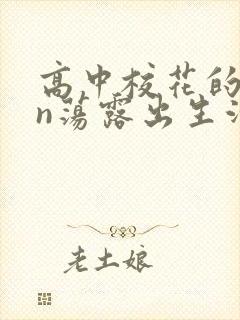 高中校花的
n蕩露出生
老土娘